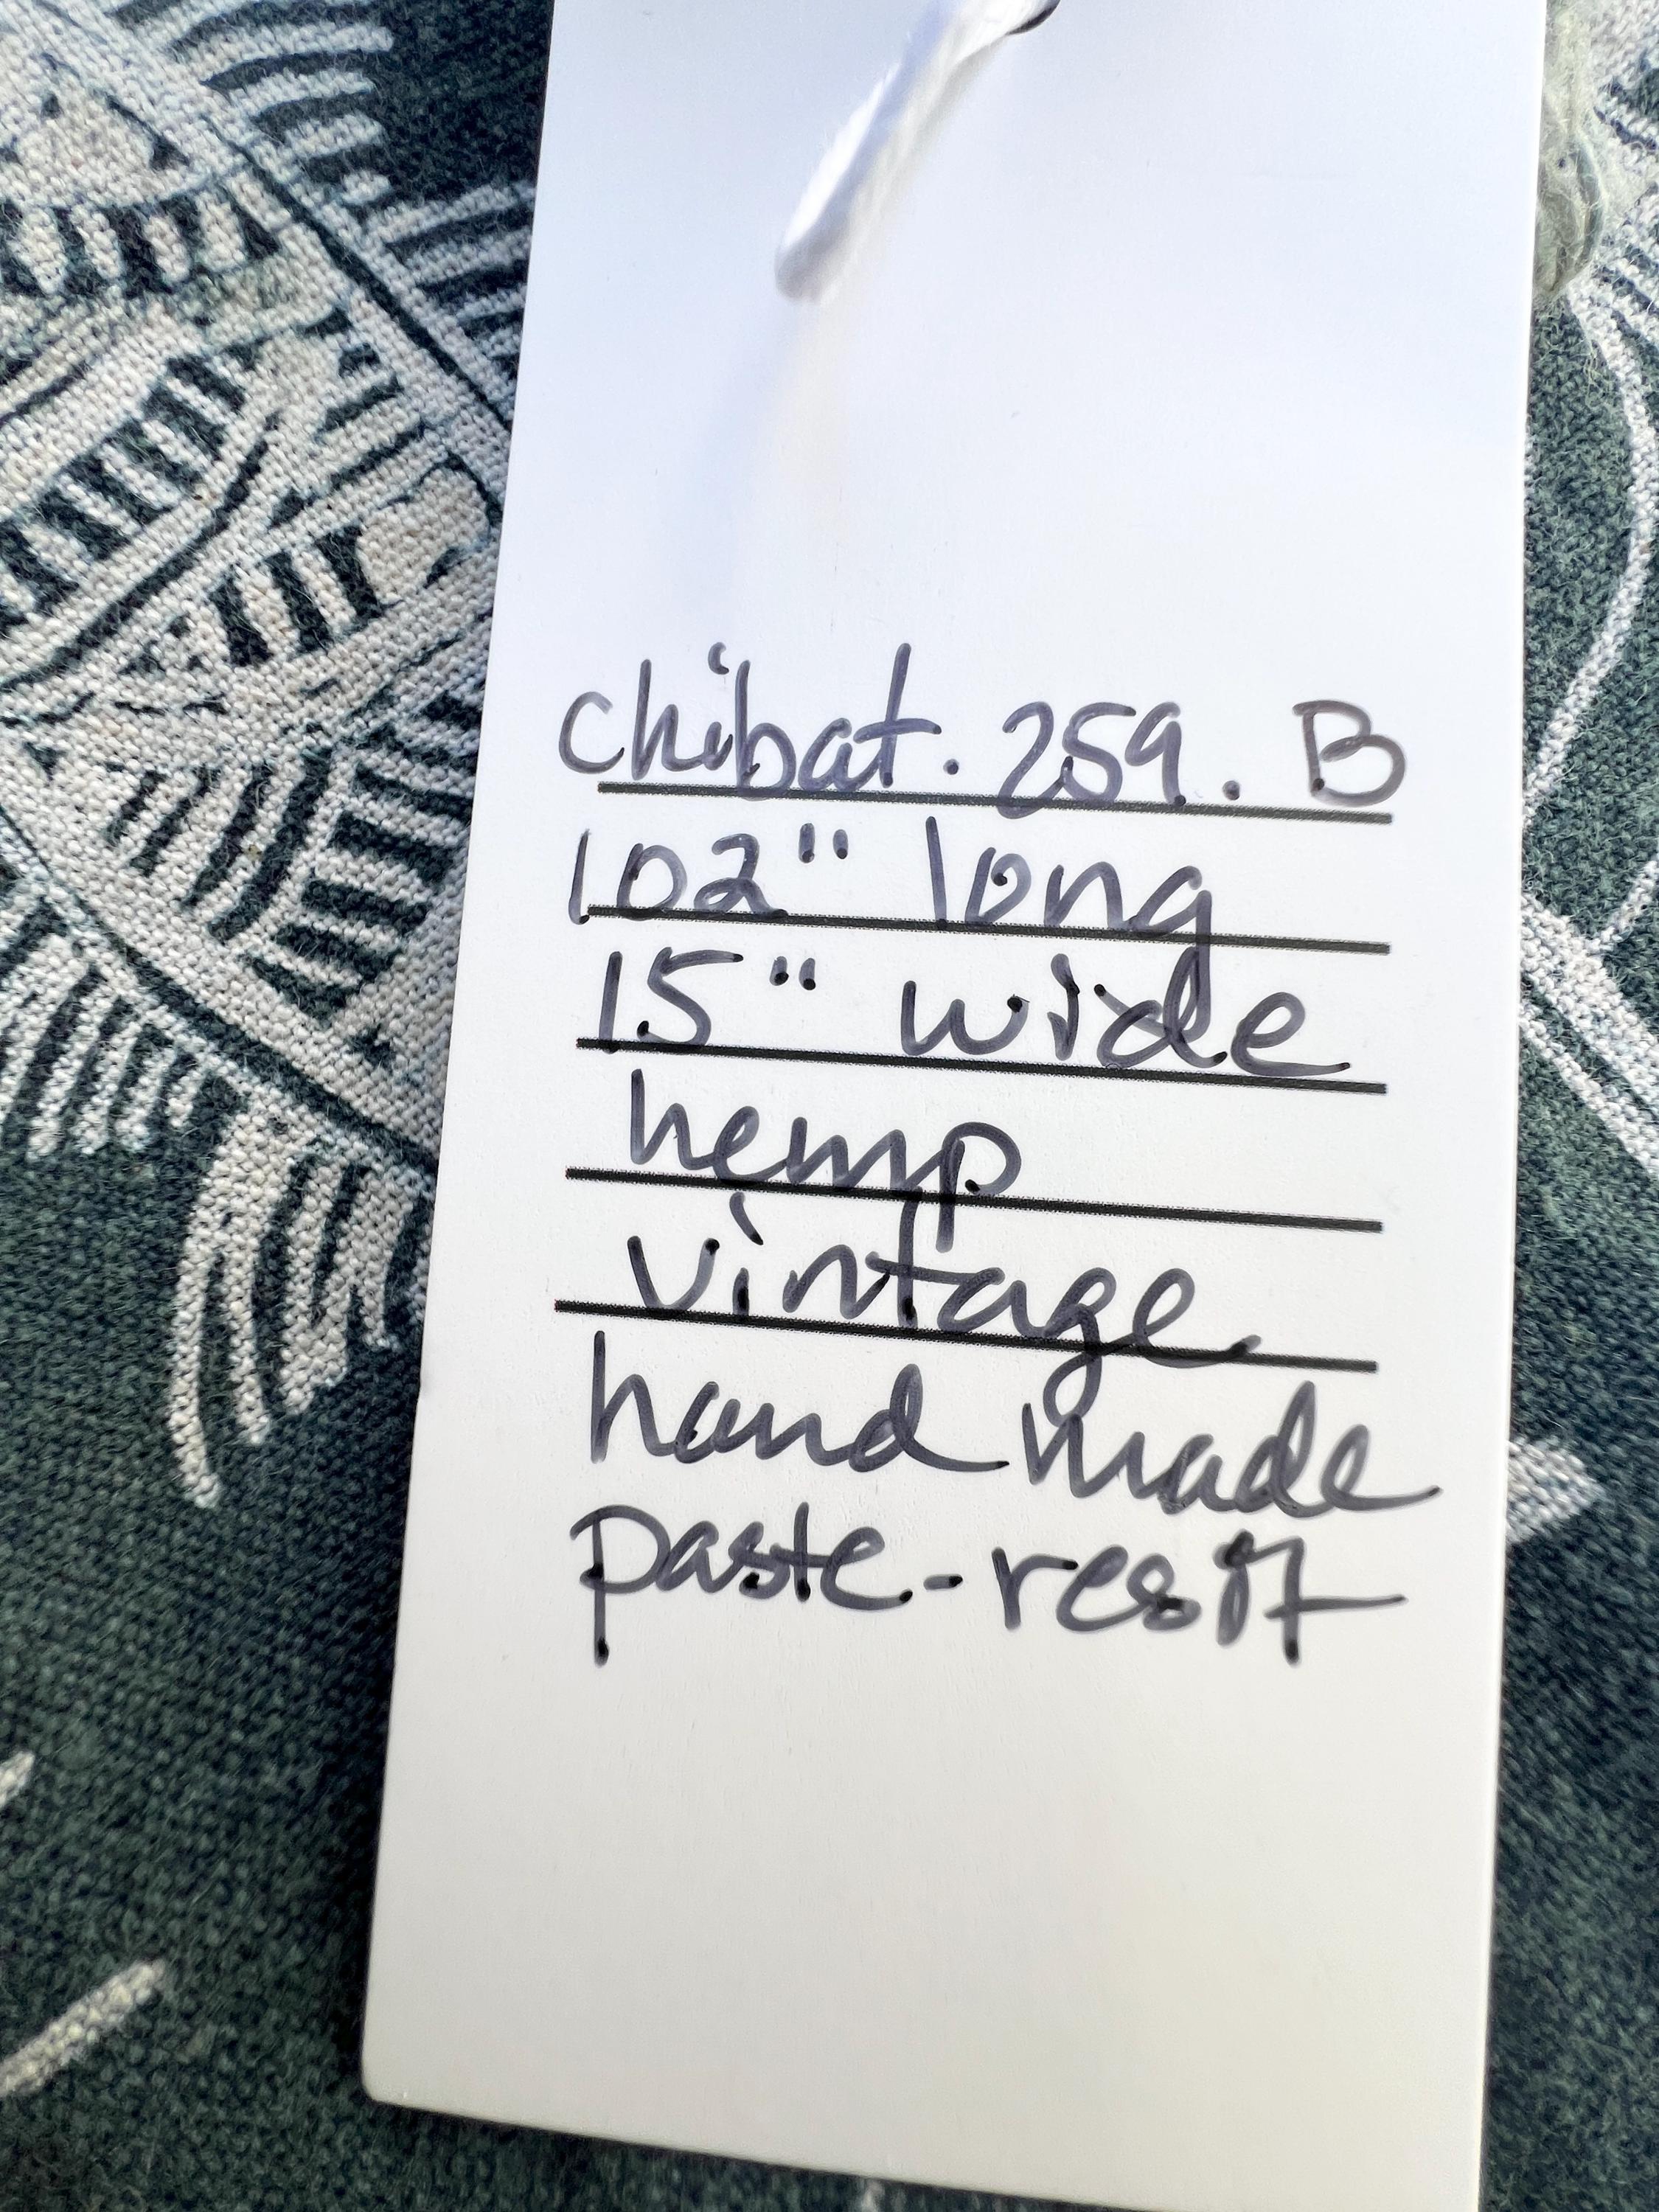 chibat. 259. B
102" long
15" wide
hemp
vintage
hand made
paste-resist